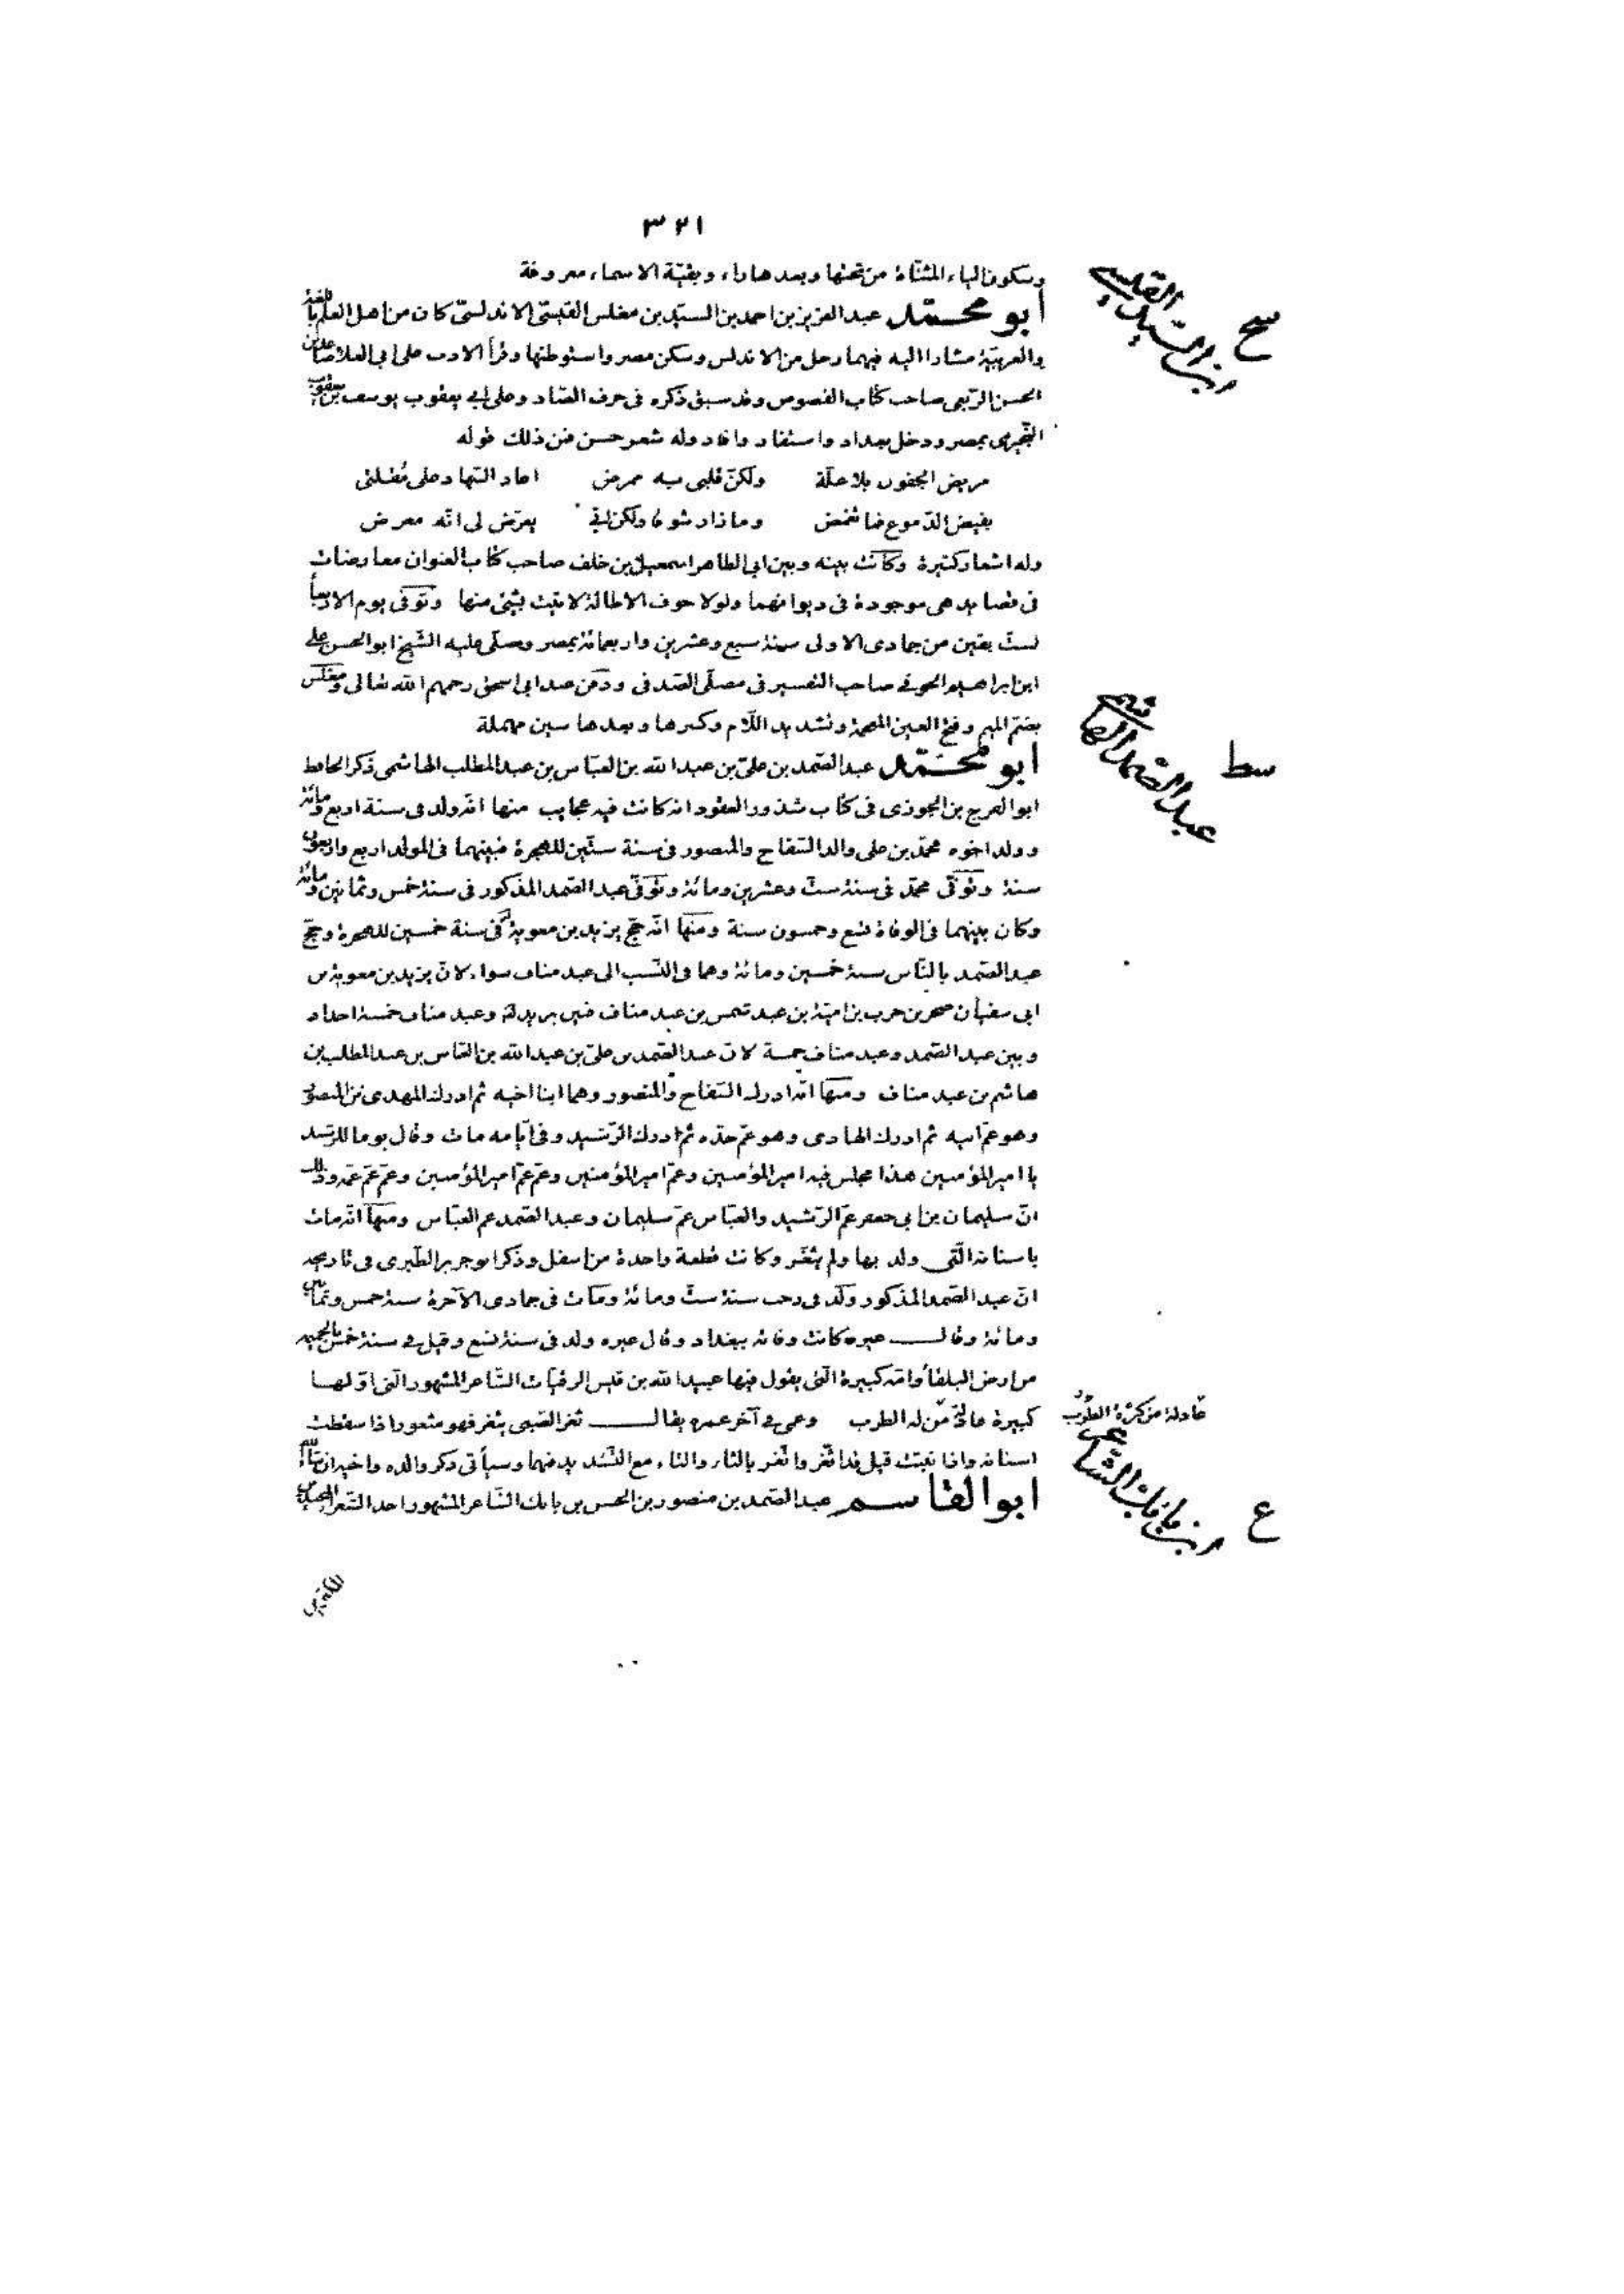 ٣٢١
وسكون الياء المثنّاة من تحتها وبعدها راء وبقيّة الاسماء معروفة
أبو محمّد عبد العزيز بن احمد بن السيّد بن مغلس القيسىّ الاندلسىّ كان من اهل العلم باللغة
والعربيّة مشارا اليه فيهما رحل من الاندلس وسكن مصر واستوطنها وقرأ الادب على ابى العلا صاعد بن
الحسن الربعى صاحب كتاب الفصوص وقد سبق ذكره فى حرف الصّاد وعلى ابى يعقوب يوسف بن يعقوب
النّجيرمى بمصر ودخل بغداد واستفاد وافاد وله شعر حسن فمن ذلك قوله
مريض الجفون بلا علّة ولكنّ قلبى به ممرض اعاد السّهاد على مُقلتى
بفيض الدّموع فما تغمض وما زاد شوقا ولكن اتى يعرّض لى انّه معرض
وله اشعار كثيرة وكانت بينه وبين ابى الطاهر اسمعيل بن خلف صاحب كتاب العنوان معارضات
فى قصايد هى موجودة فى ديوانهما ولولا خوف الاطالة لاتيت بشئ منها وتوفى يوم الاربعأ
لستّ بقين من جمادى الاولى سنة سبع وعشرين واربعمائة بمصر وصلّى عليه الشّيخ ابو الحسن على
ابن ابراهيم الحوفى صاحب التفسير فى مصلّى الصّدفى ودفن عند ابى اسحق رحمهم الله تعالى ومغلس
بضمّ الميم وفتح الغين المعجمة وتشديد اللّام وكسرها وبعدها سين مهملة
أبو محمّد عبد الصّمد بن علىّ بن عبد الله بن العبّاس بن عبد المطلب الهاشمى ذكر الحافظ
ابو الفرج بن الجوزى فى كتاب شذور العقود انه كانت فيه عجايب منها انّه ولد فى سنة اربع ومائة
وولد اخوه محمّد بن على والد السّفاح والمنصور فى سنة ستّين للهجرة فبينهما فى المولد اربع واربعون
سنة وتوفّى محمّد فى سنة ستّ وعشرين ومائة وتوفّى عبد الصّمد المذكور فى سنة خمس وثمانين ومائة
وكان بينهما فى الوفاة تسع وخمسون سنة ومنها انّه حجّ يزيد بن معوية فى سنة خمسين للهجرة وحجّ
عبد الصّمد بالنّاس سنة خمسين ومائة وهما فى النّسب الى عبد مناف سواء لانّ يزيد بن معوية بن
ابى سفيان صخر بن حرب بن اميّة بن عبد شمس بن عبد مناف فبين يزيد وعبد مناف خمسة اجداد
وبين عبد الصّمد وعبد مناف خمسة لانّ عبد الصّمد بن علىّ بن عبد الله بن العبّاس بن عبد المطلب بن
هاشم بن عبد مناف ومنها انّه ادرك السّفاح والمنصور وهما ابنا اخيه ثم ادرك المهدى بن المنصور
وهو عمّ ابيه ثم ادرك الهادى وهو عمّ جدّه ثم ادرك الرّشيد وفى ايّامه مات وقال يوما للرّشيد
يا امير المؤمنين هذا مجلس فيه امير المؤمنين وعمّ امير المؤمنين وعمّ عمّ امير المؤمنين وعمّ عمّ عمّه وذلك
انّ سليمان بن ابى جعفر عمّ الرّشيد والعبّاس عمّ سليمان وعبد الصّمد عم العبّاس ومنها انّه مات
باسنانه الّتى ولد بها ولم يثغر وكانت قطعة واحدة من اسفل وذكر ابو جرير الطّبرى فى تاريخه
انّ عبد الصّمد المذكور ولد فى رجب سنة ستّ ومائة ومات فى جمادى الآخرة سنة خمس وثمانين
ومائة وقال غيره كانت وفاته ببغداد وقال غيره ولد فى سنة تسع وقيل فى سنة خمس بالحميمه
من ارض البلقأ وامّه كبيرة الّتى يقول فيها عبيد الله بن قيس الرقيّات الشّاعر المشهور الّتى اوّلها
كبيرة من له الطرب وعمى فى آخر عمره يقال ثغر الصّبى يثغر فهو مثغور اذا سقطت
اسنانه واذا نبتت قيل قد اتّغر واثّغر بالثاء والتاء مع التّشديد فيهما وسيأتى ذكر والده واخيه ان شاء الله
ابو القاسم عبد الصّمد بن منصور بن الحسن بن بابك الشّاعر المشهور احد الشّعراء المجيدين
المكثرين
سح
ابن السّيد القيسى
سط
عبد الصّمد الهاشمى
عادلة من كثرة الطّرب
ع
ابن بابك الشّاعر